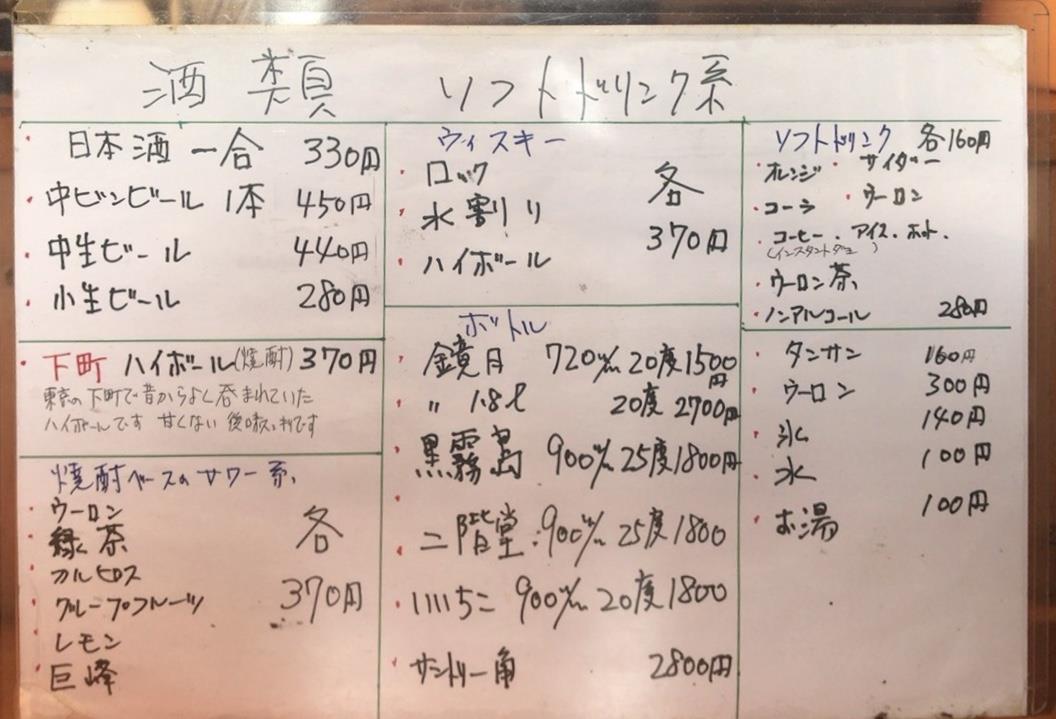 酒類 ソフトドリンク系
・日本酒 一合 330円
・中ビンビール 1本 450円
・中生ビール 440円
・小生ビール 280円
・下町 ハイボール(焼酎) 370円
東京の下町で昔からよく呑まれていた
ハイボールです 甘くない
焼酎ベースのサワー系
・ウーロン 各
・緑茶
・カルピス
・グループフルーツ 370円
・レモン
・巨峰
ウィスキー
・ロック 各
・水割り
・ハイボール 370円
ボトル
・鏡月 720m/m 20度 1500円
・〃 1.8ℓ 20度 2700円
・黒霧島 900m/m 25度 1800円
・二階堂 900m/m 25度 1800
・いいちこ 900m/m 20度 1800
・サントリー角 2800円
ソフトドリンク 各160円
・オレンジ ・サイダー
・コーラ ・ウーロン
・コーヒー・アイス・ホット・
・ウーロン茶
・ノンアルコール 280円
・タンサン 160円
・ウーロン 300円
・氷 140円
・水 100円
・お湯 100円